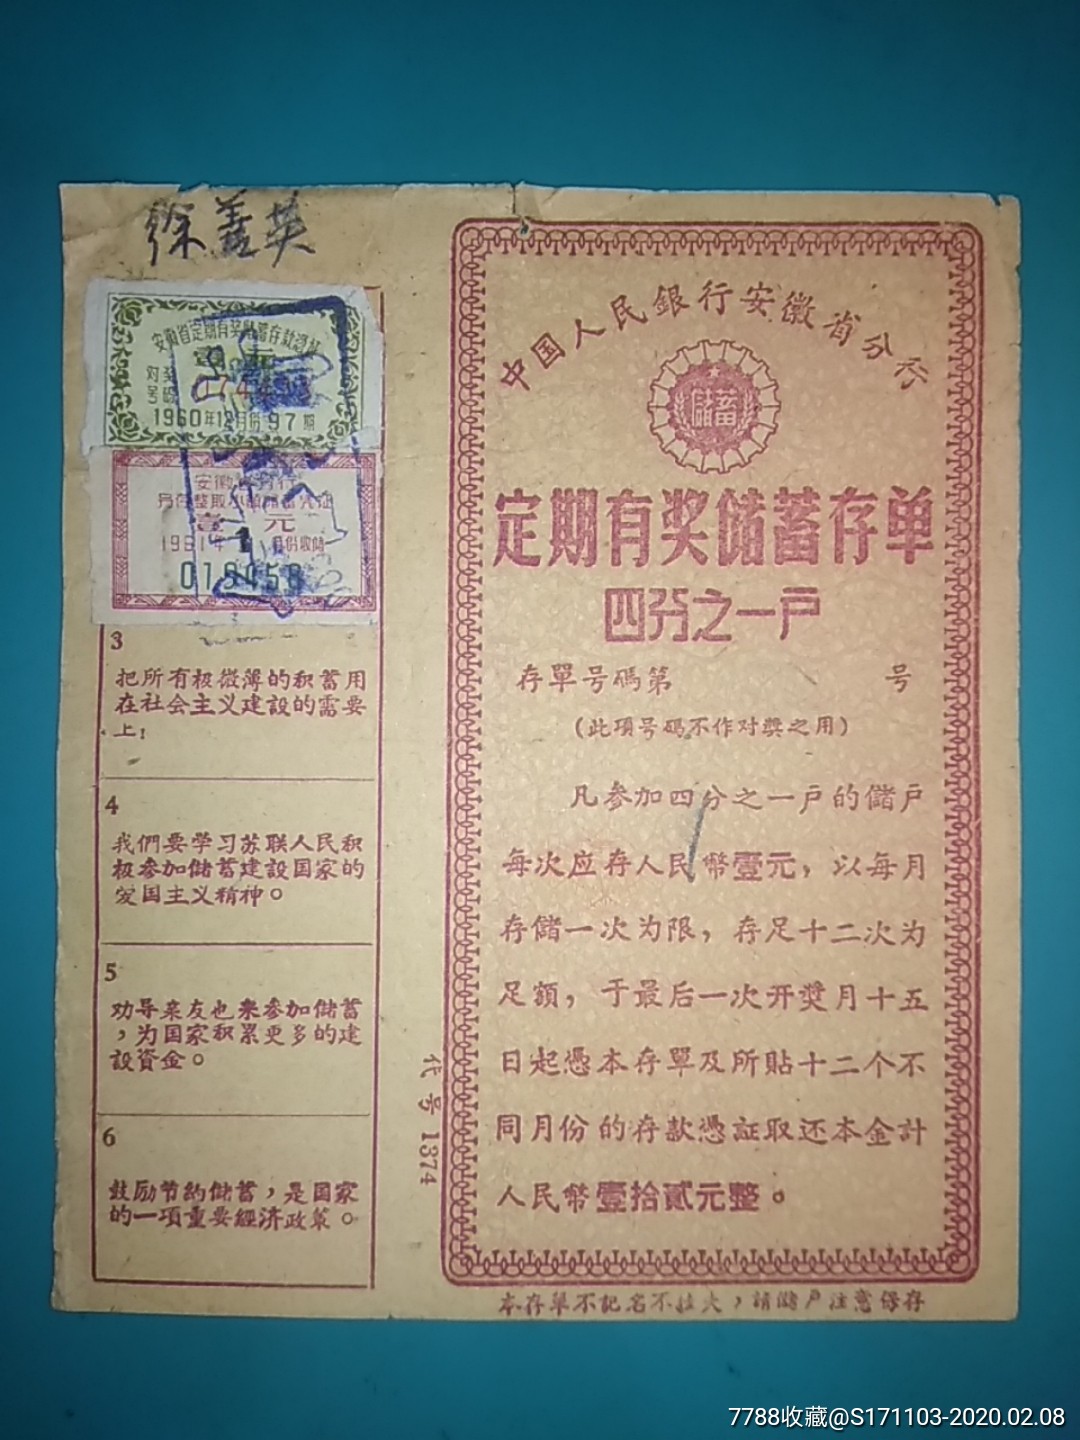 徐善英
安徽省定期有奖儲蓄存款憑証
对奖
号碼
1960年12月份97期
安徽省分行
另存整取小額儲蓄凭证
壹元
1961年1月份收储
3
把所有极微薄的积蓄用
在社会主义建設的需要
上!
4
我們要学习苏联人民积
极参加儲蓄建設国家的
爱国主义精神。
5
劝导亲友也来参加儲蓄
,为国家积累更多的建
設資金。
6
鼓励节約儲蓄,是国家
的一項重要經济政策。
代号1374
中国人民銀行安徽省分行
儲蓄
定期有奖儲蓄存单
四分之一戶
存單号碼第 号
(此項号碼不作对獎之用)
凡参加四分之一戶的儲戶
每次应存人民幣壹元,以每月
存儲一次为限,存足十二次为
足額,于最后一次开獎月十五
日起憑本存單及所貼十二个不
同月份的存款憑証取还本金計
人民幣壹拾貳元整。
本存單不記名不挂失,請儲戶注意保存
7788收藏@S171103-2020.02.08